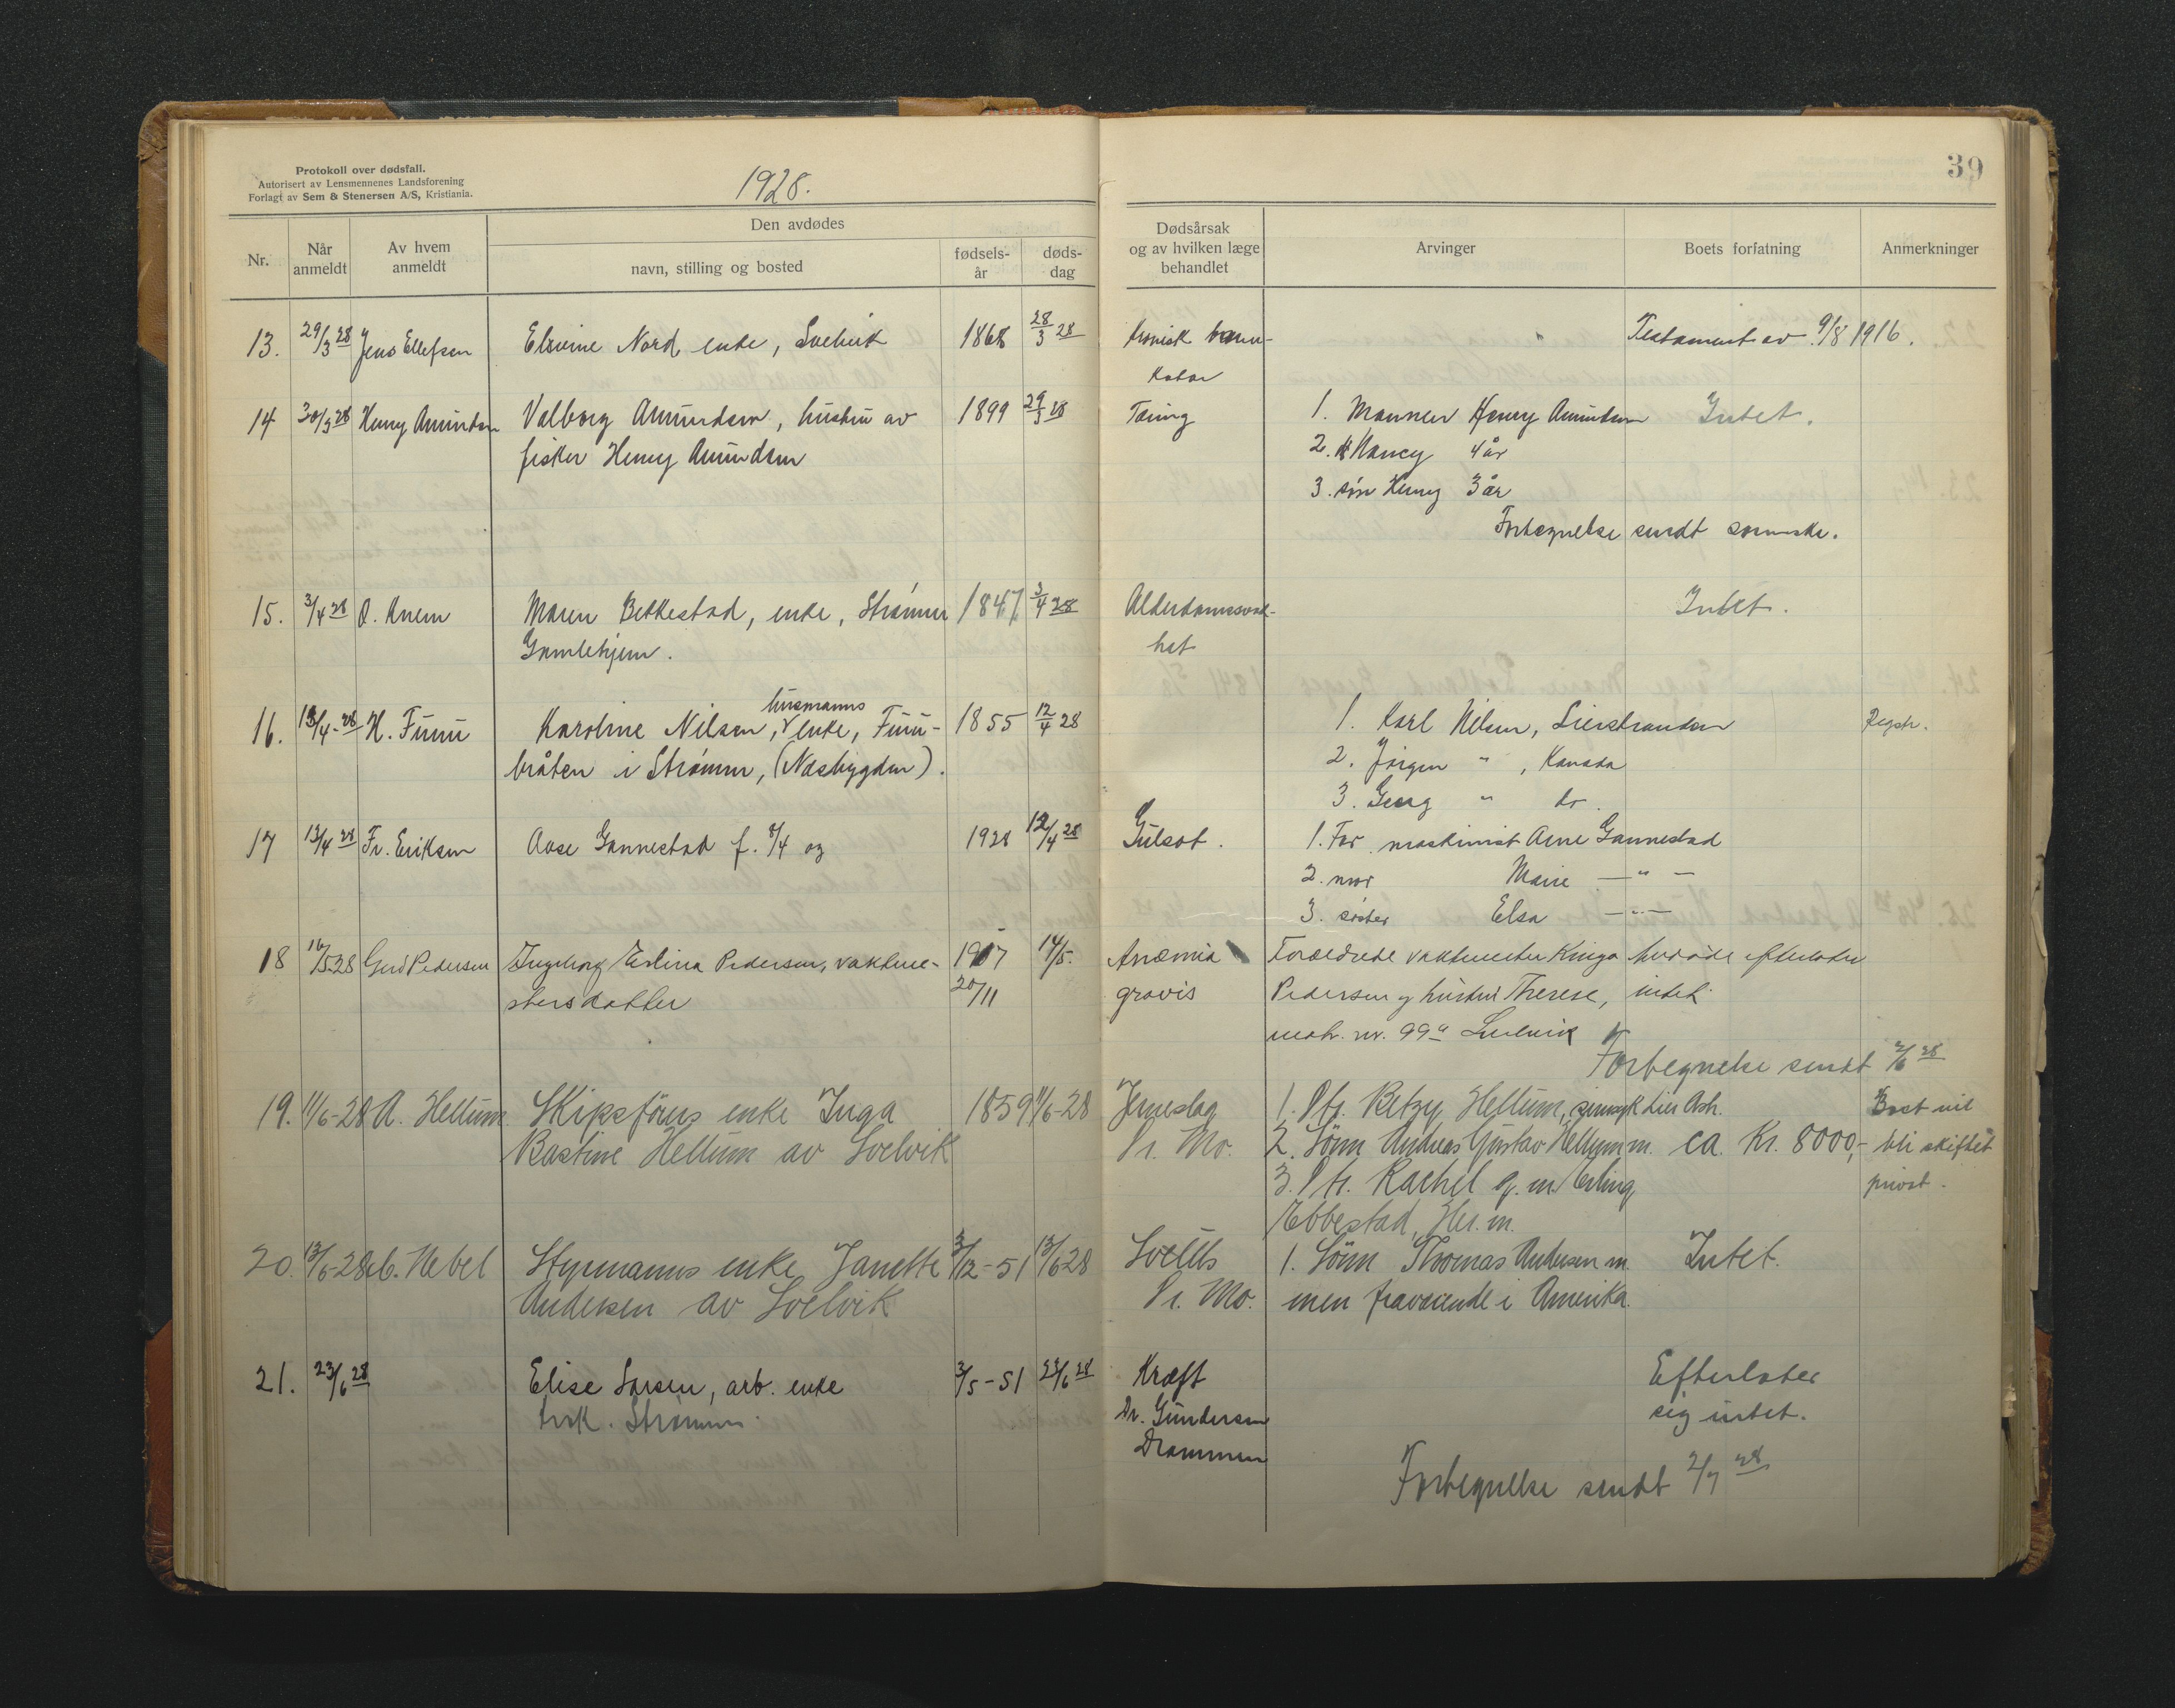 Protokoll over dødsfall.
Autorisert av Lensmennenes Landsforening
Forlagt av Sem & Stenersen A/S, Kristiania.
1928.
39
Nr.
Når anmeldt
Av hvem anmeldt
Den avdødes
navn, stilling og bosted
fødsels-år
døds-dag
Dødsårsak
og av hvilken læge
behandlet
Arvinger
Boets forfatning
Anmerkninger
13. 29/3 28 Jens Ellefsen Elvine Nord, enke, Svelvik 1868 28/3 28 Testament av 9/8 1916.
14 30/3 28 Henny Amundsen Valborg Amundsen, hustru av 1899 29/3 28 Tæring 1. Mannen Henry Amundsen Intet.
fisker Henry Amundsen 2. Nancy 4 år
3. søn Henry 3 år
Fortegnelse sendt
15. 3/4 28 O. Knem Maren Bekkestad, enke, Strømm 1847 3/4 28 Alderdomssvak- Intet.
Gamlehjem. het
husmanns
16. 13/4-28 H. Fuuu Karoline Nilsen, enke, Fuuu- 1855 12/4 28 1. Karl Nilsen, Lierstranden Regstr.
bråten i Strømm, (Nesbygden). 2. Jørgen " , Kanada
3. Georg " do.
17 13/4 28 Fr. Eriksen Aase Gannestad f. 8/4 og 1928 12/4 28 Gulsot. 1. Far maskinist Arne Gannestad
2. mor Marie — " —
3. søster Elsa — " —
18 16/5 28 Gerd Pedersen Ingeborg Erlina Pedersen, vaktme- 1907 14/5. Anæmia Forældrene vaktmester Kinga avdøde efterlater
stersdatter 20/11 gravis Pedersen og hustru Therese, intet
matr. nr. 99a Svelvik
Fortegnelse sendt 2/6 28
19. 11/6-28 A. Hellum Skipsförers enke Inga 1859 11/6-28 Jerneslag 1. Dtr. Betzy Hellum, sinsyk Lier Asyl. Boet vil
Bastine Hellum av Svelvik Dr. Mo. 2. Sönn Andreas Gustav Hellum m. ca. Kr. 8000,- bli skiftet
3. Dtr. Rachel g. m. Erling privat.
Ebbestad, Her. m.
20. 13/6-28 b. Nebel Styrmanns enke Janette 3/12-51 13/6 28 1. Sönn Thomas Andersen m. Intet.
Andersen av Svelvik Dr. Mo. men fraværende i Amerika.
21. 23/6 28 Elise Larsen, arb. enke 3/5-51 22/6 28 Kræft Efterlater
Strømm. Dr. Gundersen sig intet.
Drammen
Fortegnelse sendt 2/7 28